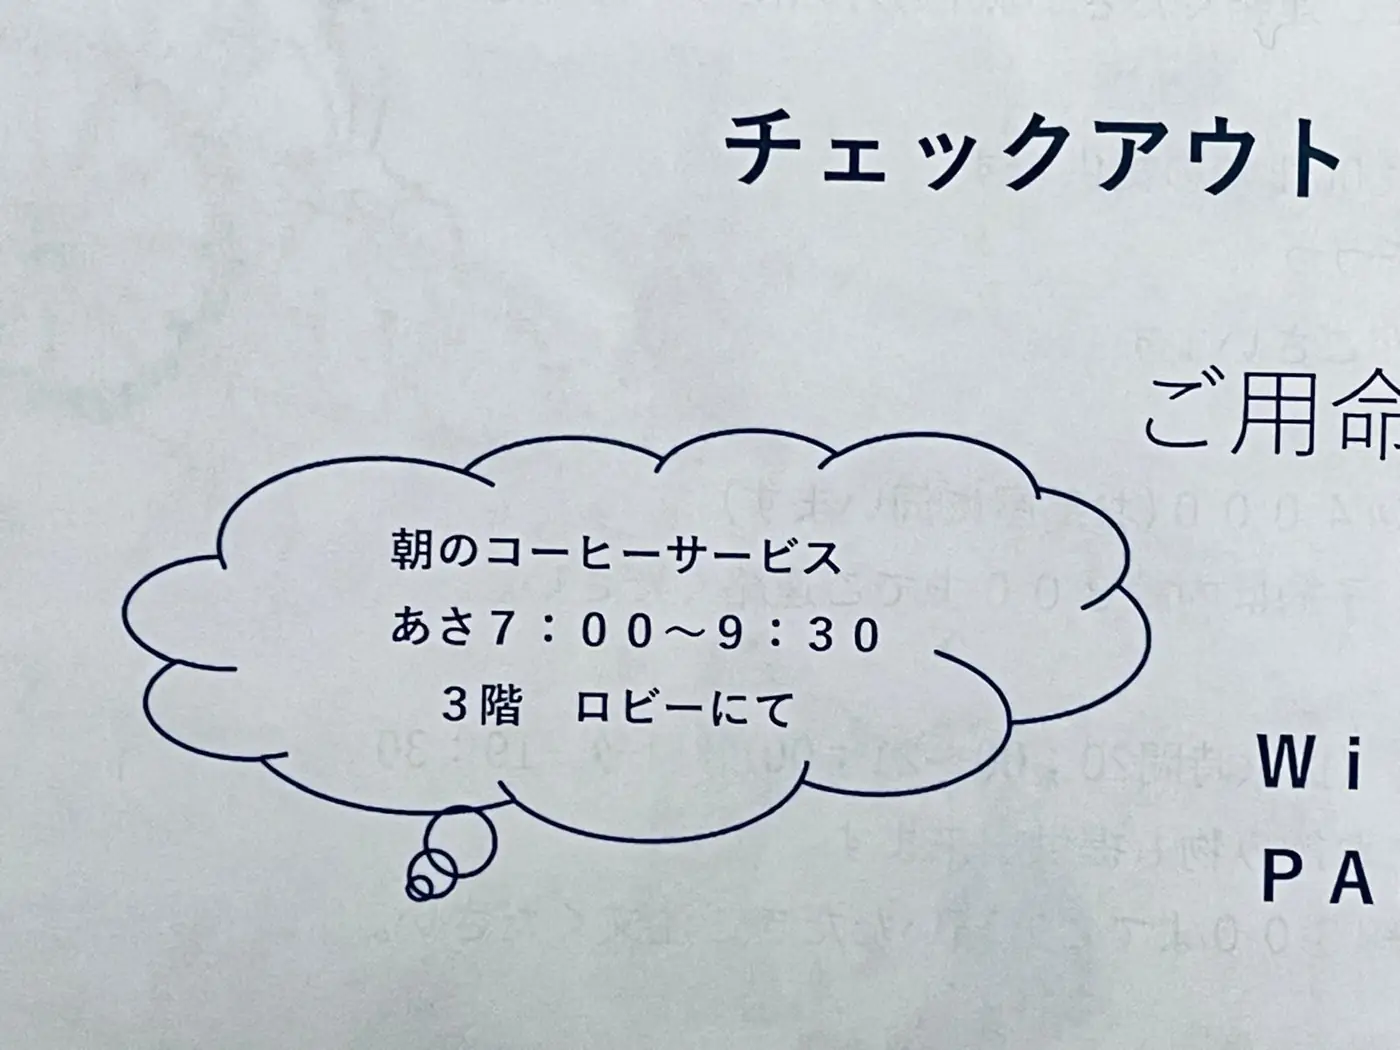 チェックアウト
ご用命
朝のコーヒーサービス
あさ７：００～９：３０
３階　ロビーにて
Ｗｉ
ＰＡ